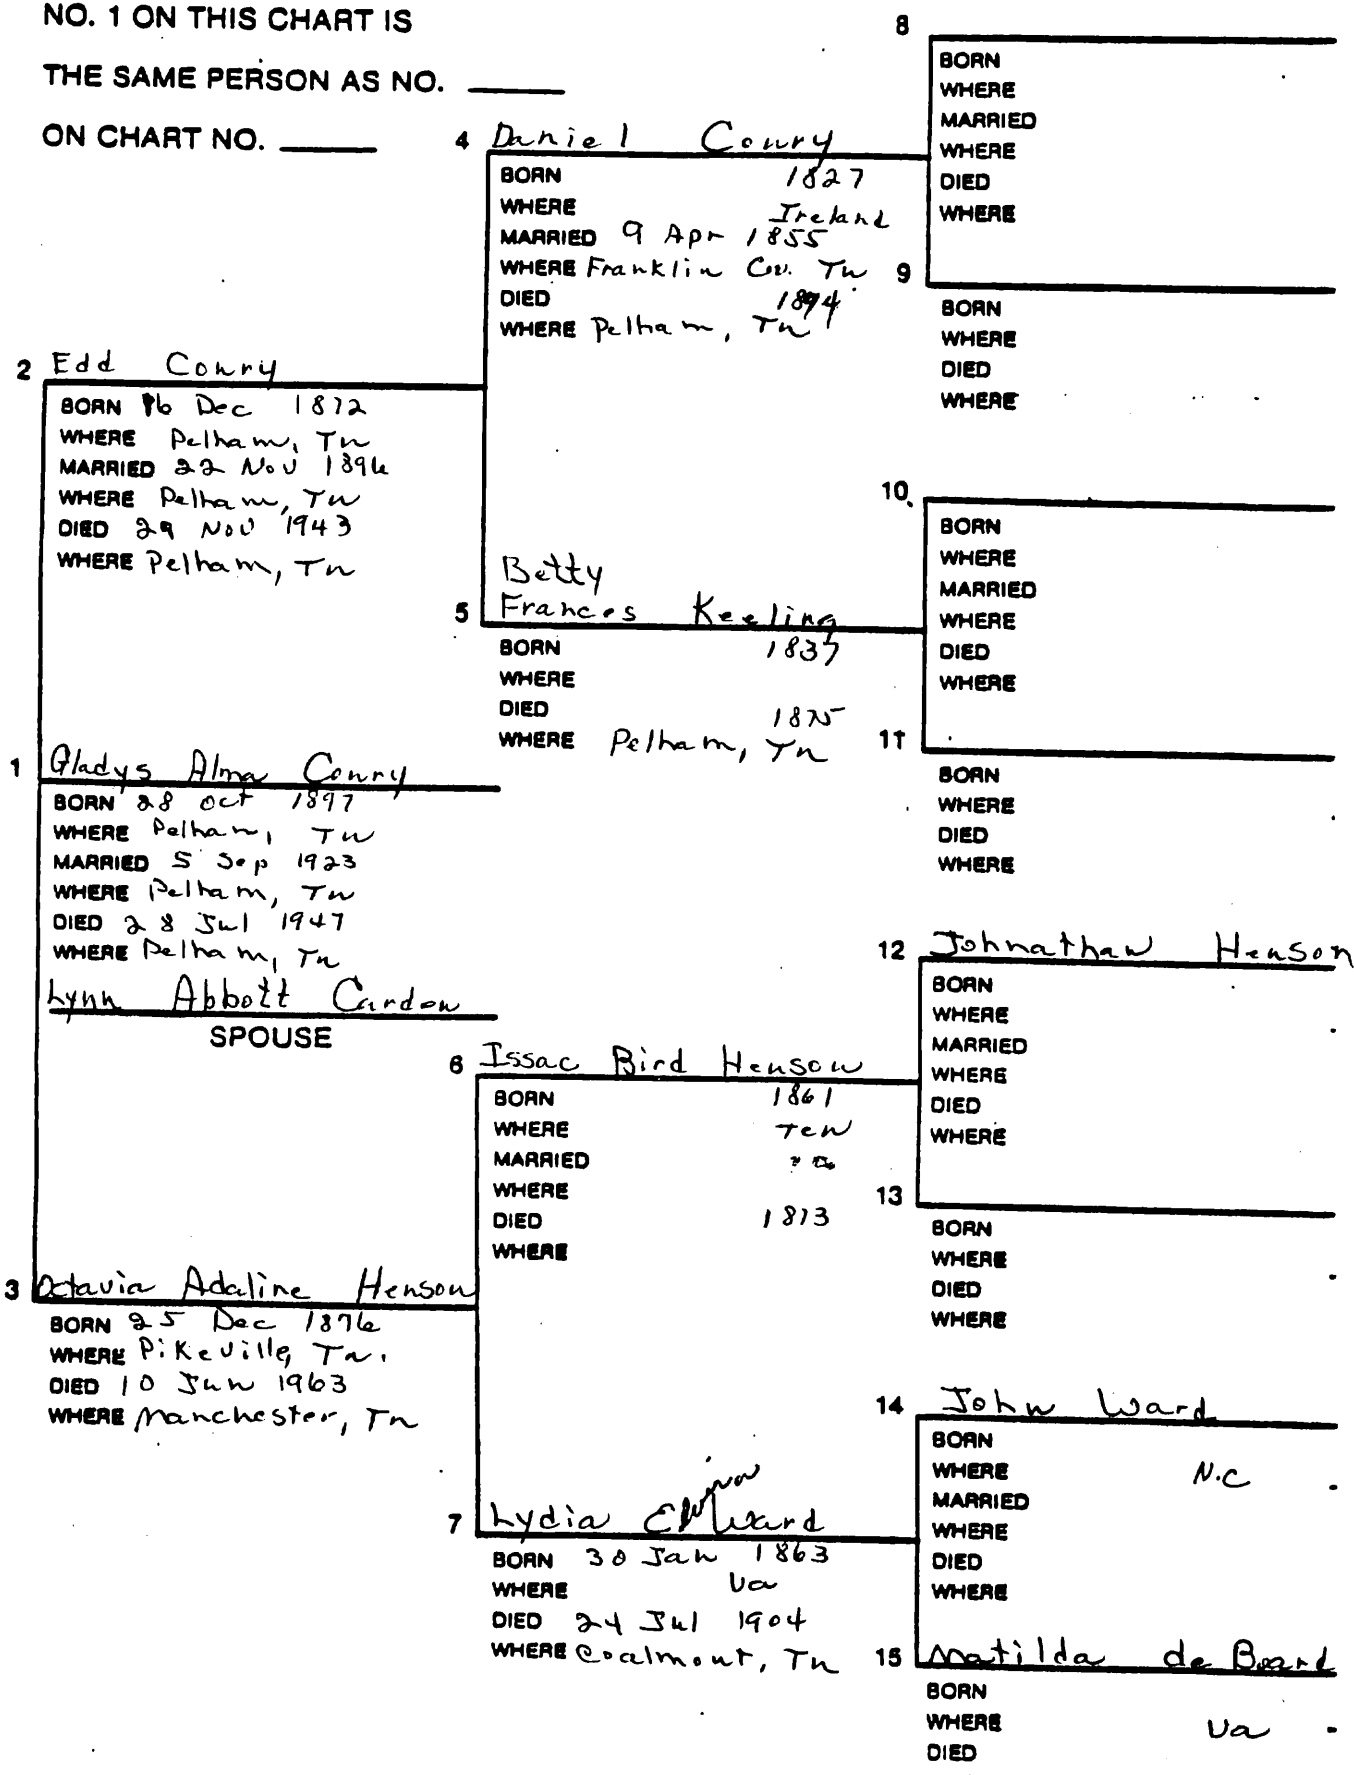 NO. 1 ON THIS CHART IS
THE SAME PERSON AS NO. ______
ON CHART NO. ______
1 Gladys Alma Conry
BORN 28 Oct 1897
WHERE Pelham, Tn
MARRIED 5 Sep 1923
WHERE Pelham, Tn
DIED 28 Jul 1947
WHERE Pelham, Tn
Lynn Abbott Carden
SPOUSE
2 Edd Conry
BORN 16 Dec 1872
WHERE Pelham, Tn
MARRIED 22 Nov 1896
WHERE Pelham, Tn
DIED 29 Nov 1943
WHERE Pelham, Tn
3 Octavia Adaline Henson
BORN 25 Dec 1876
WHERE Pikeville, Tn.
DIED 10 Jun 1963
WHERE Manchester, Tn
4 Daniel Conry
BORN 1827
WHERE Ireland
MARRIED 9 Apr 1855
WHERE Franklin Co. Tn
DIED 1894
WHERE Pelham, Tn
Betty
5 Frances Keeling
BORN 1837
WHERE
DIED 1875
WHERE Pelham, Tn
6 Issac Bird Henson
BORN 1861
WHERE Ten
MARRIED
WHERE
DIED 1813
WHERE
7 Lydia Elvina Ward
BORN 30 Jan 1863
WHERE Va
DIED 24 Jul 1904
WHERE Coalmont, Tn
8
BORN
WHERE
MARRIED
WHERE
DIED
WHERE
9
BORN
WHERE
DIED
WHERE
10
BORN
WHERE
MARRIED
WHERE
DIED
WHERE
11
BORN
WHERE
DIED
WHERE
12 Johnathan Henson
BORN
WHERE
MARRIED
WHERE
DIED
WHERE
13
BORN
WHERE
DIED
WHERE
14 John Ward
BORN
WHERE N.C
MARRIED
WHERE
DIED
WHERE
15 Matilda de Board
BORN
WHERE Va
DIED